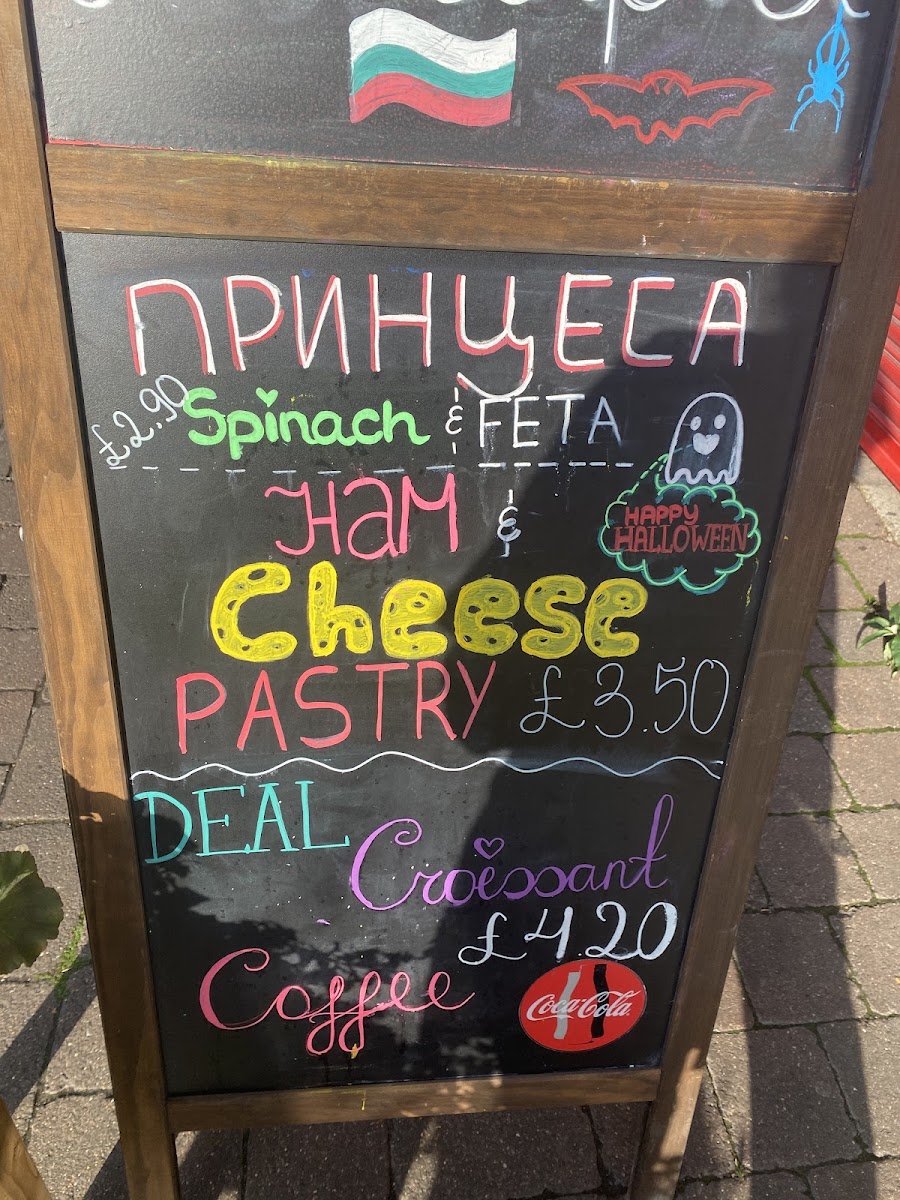 ПРИНЦЕСА
£2.90 Spinach & FETA
Ham &
Cheese
PASTRY £3.50
HAPPY
HALLOWEEN
DEAL
Croissant
£4.20
Coffee
Coca-Cola